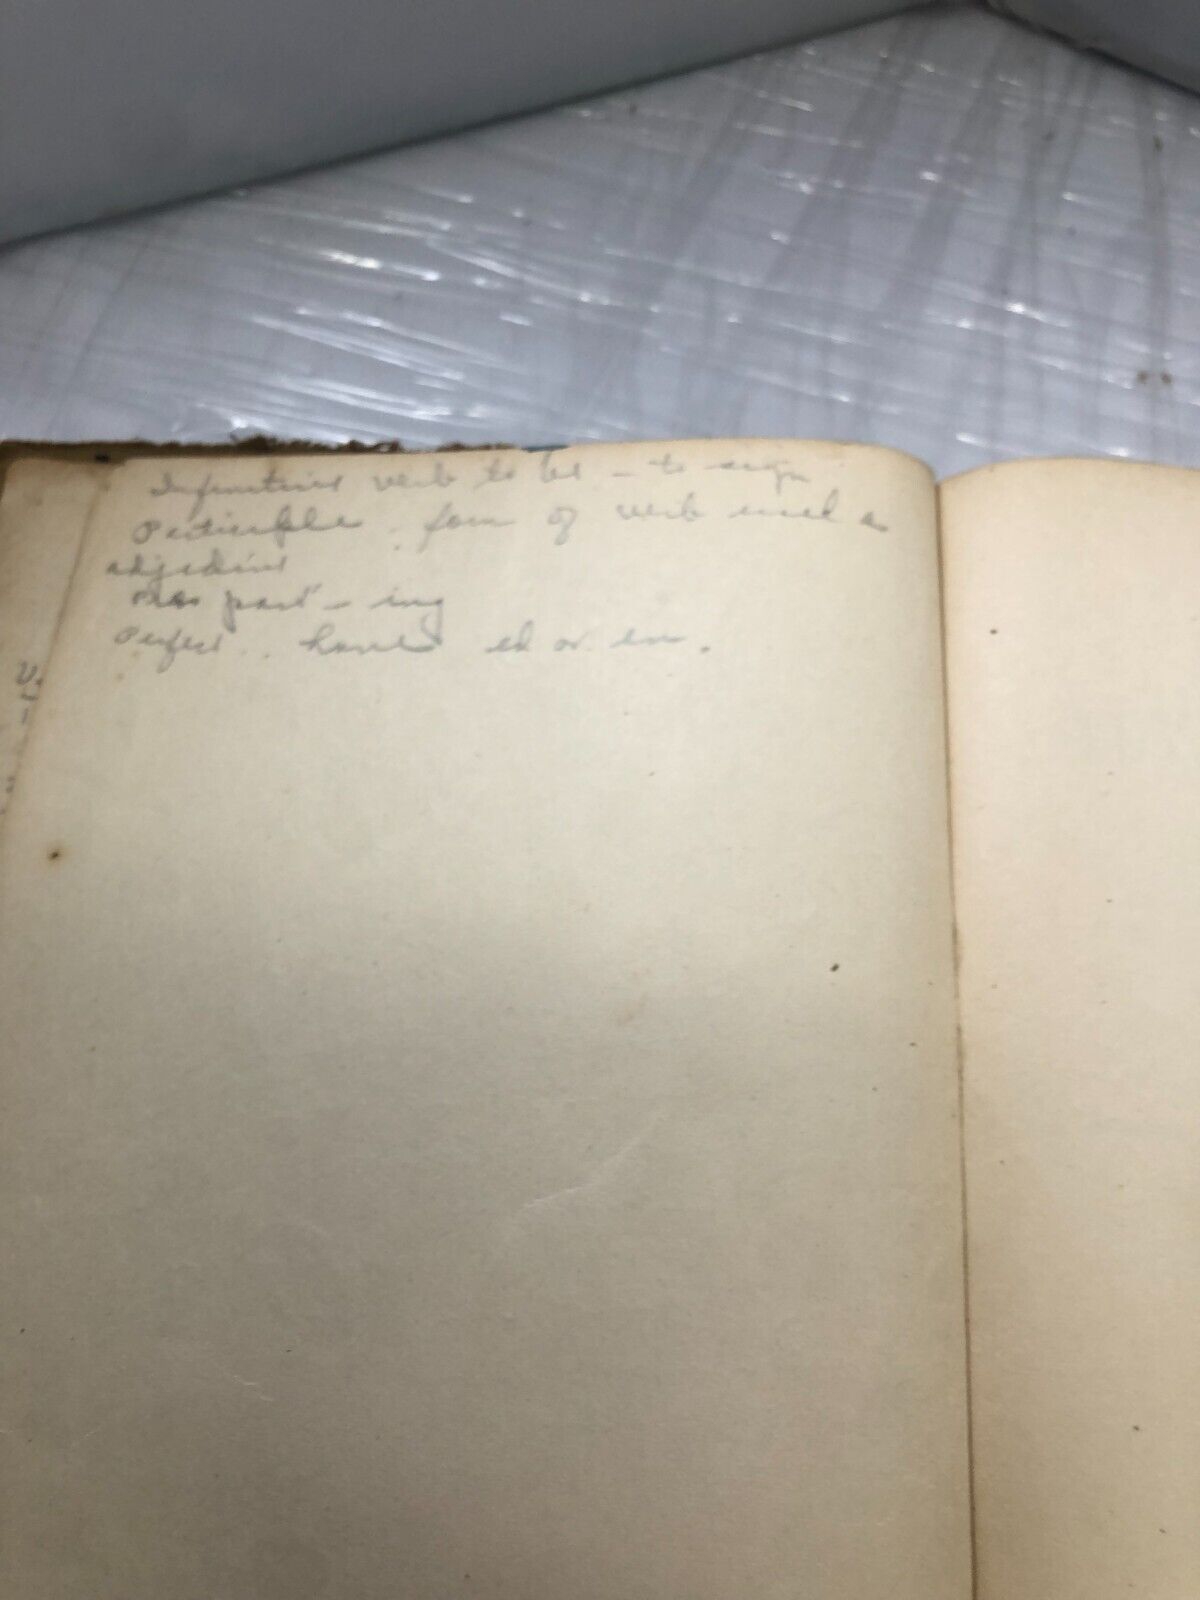 Infinitive verb to be – to sign
Participle. form of verb used a
adjective
Pres part – ing
Perfect.. have ed or en.